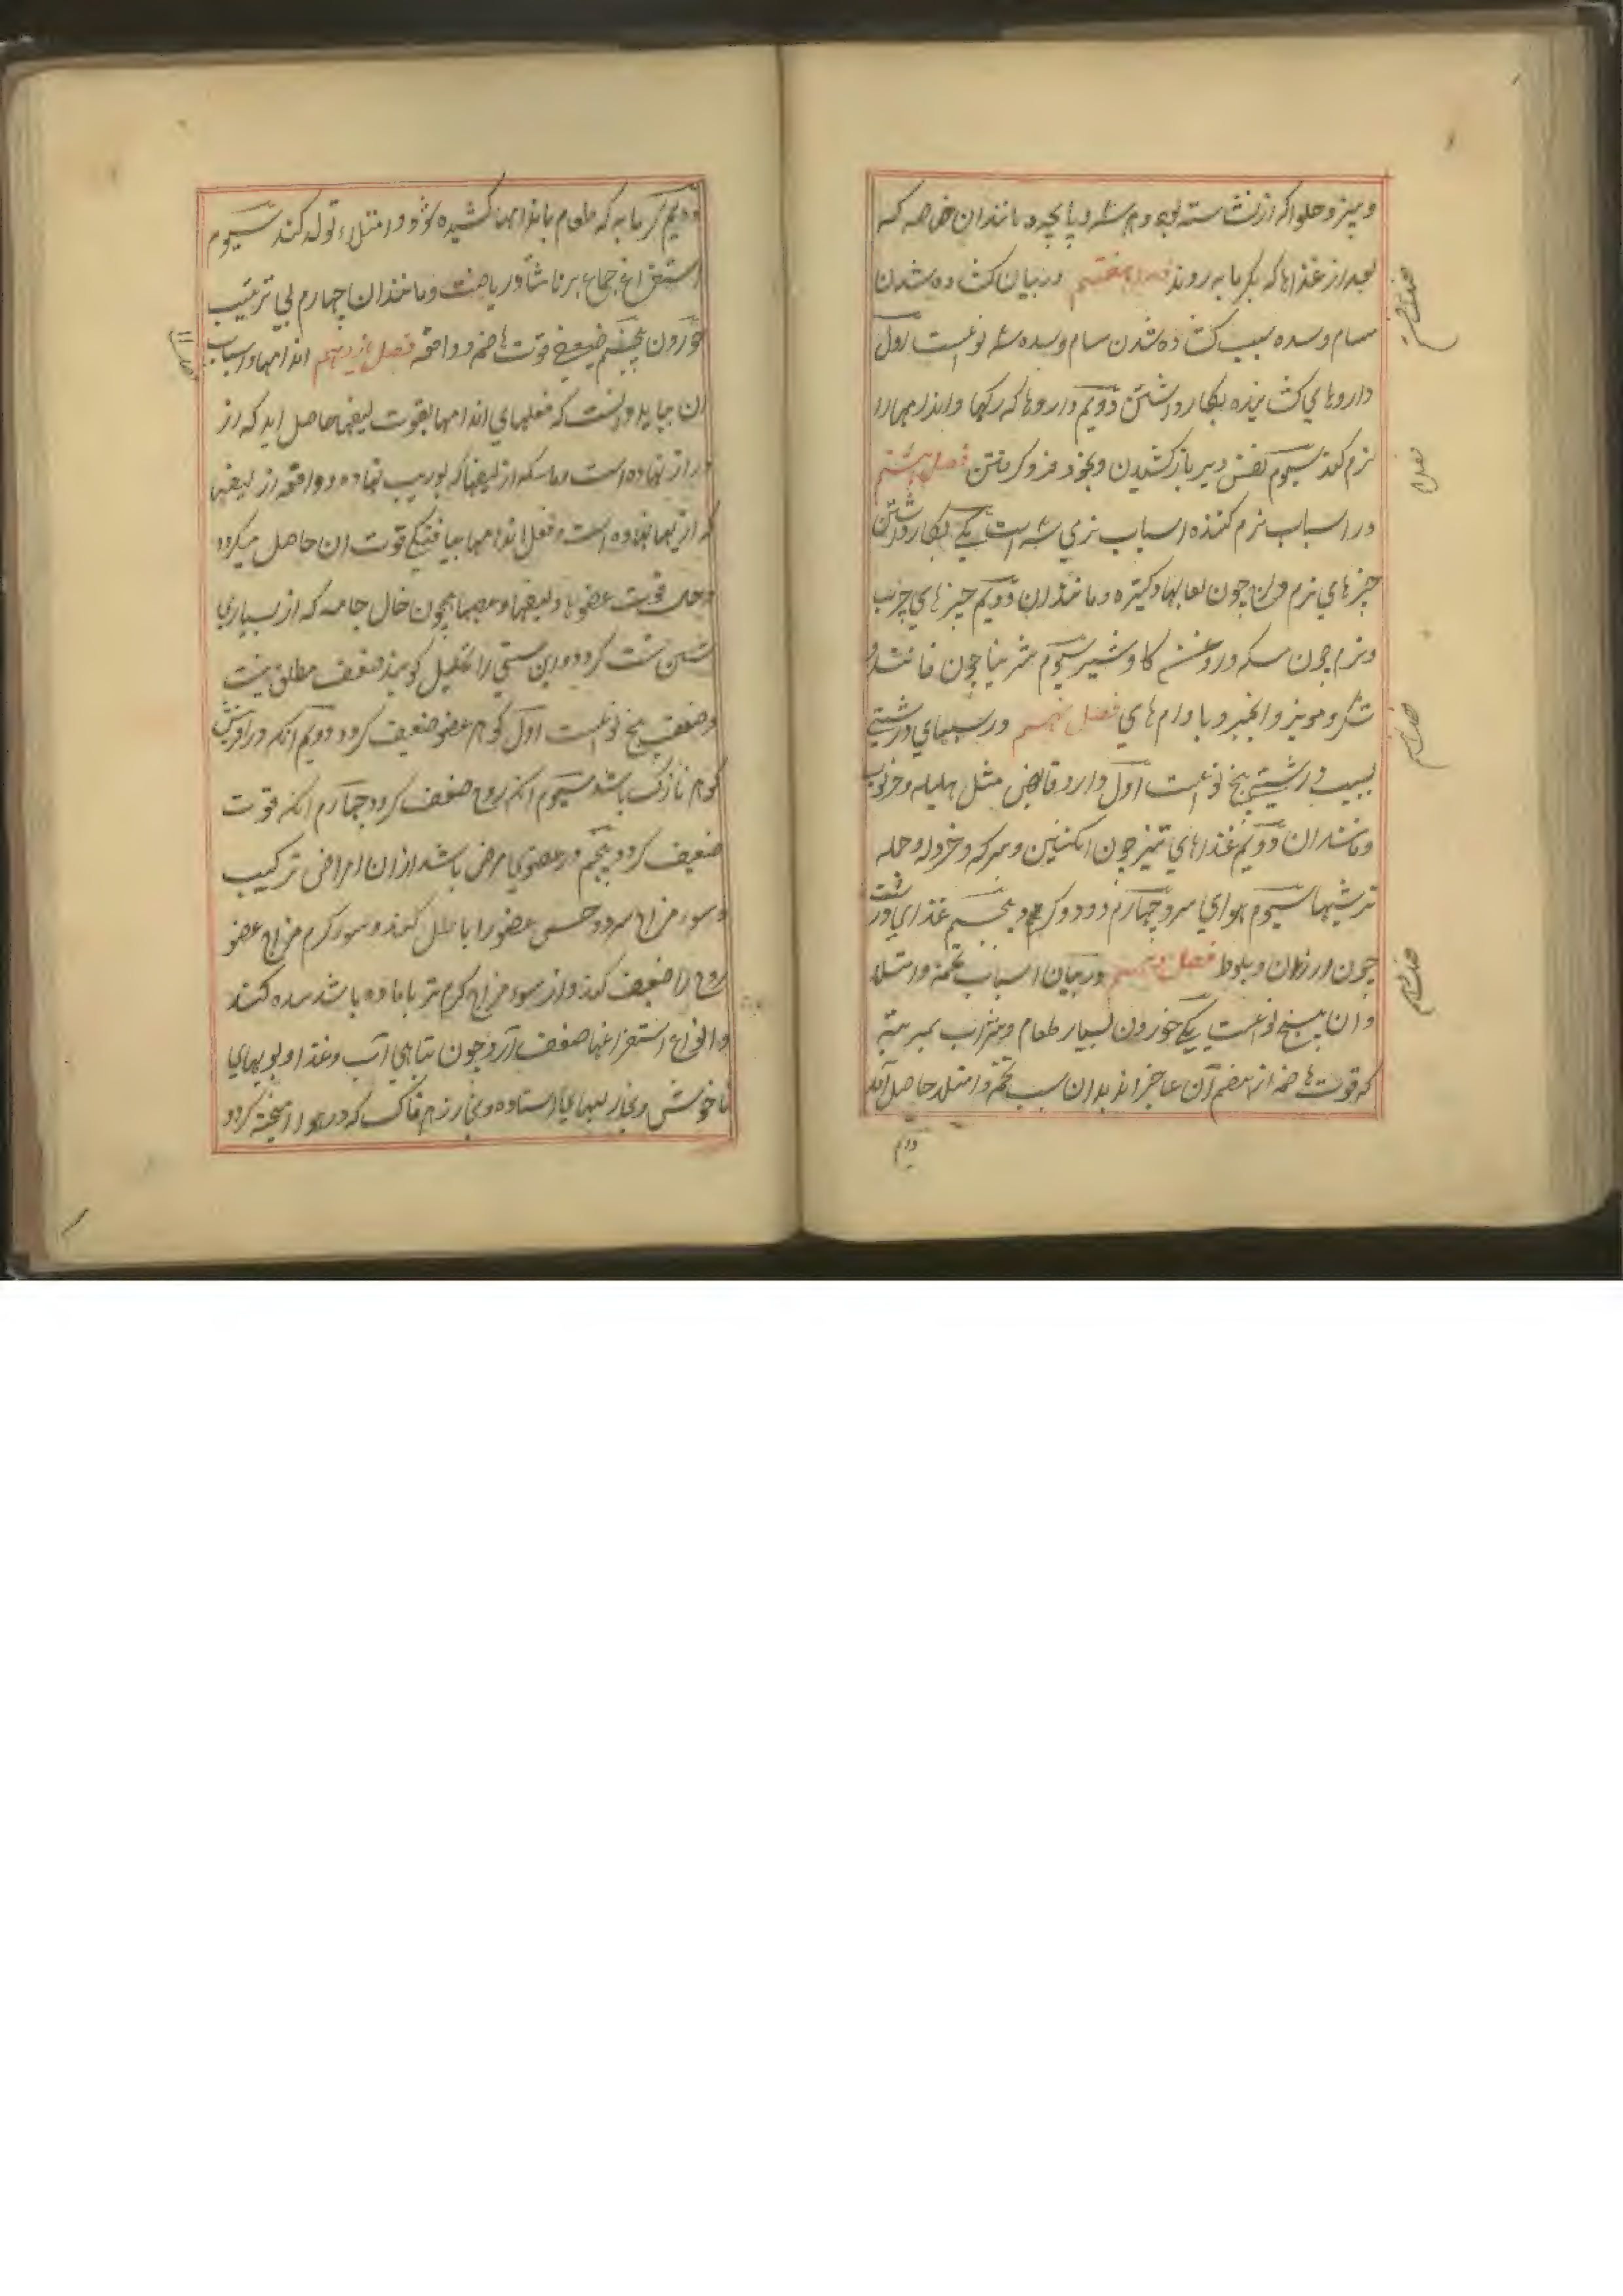 و پنیر و حلوا که از نشاسته بود و هریسه و پاچه و مانند آن خاصه که
بعد از غذاها که بگرمابه روند فصل هفتم در بیان کشاده شدن
مسام و سده سبب کشاده شدن مسام و سده سه نوعست اول
داروهای کشاینده بکار داشتن دویم داروها که رکها و اندامها را
نرم کند سیوم نفس دیر باز کشیدن و بخود فرو کرفتن فصل هشتم
در اسباب نرم کننده اسباب نرمی سه است یکی بکار داشتن
چیزهای نرم چون لعابها و کتیره و مانند آن دویم چیزهای چرب
و نرم چون مسکه و روغن کاو و شیر سیوم شیرینیها چون فانید و
شکر و مویز و انجیر و بادام های فصل نهم در سببهای درشتی
سبب درشتی پنج نوعست اول دارو قابض مثل هلیله و خرنوب
و مانند آن دویم غذاهای تیز چون انکبین و سرکه و خردل و جمله
ترشیها سیوم هوای سرد چهارم دود و کرد پنجم غذای درشت
چون ارزن و بلوط فصل دهم در بیان اسباب تخمه و امتلا
و آن پنج نوعست یکی خوردن بسیار طعام و شراب بمرتبه
که قوت هاضمه از هضم آن عاجز آید بدان سبب تخمه و امتلا حاصل آید
دویم
دویم کرمابه که طعام باندامها کشیده شود و امتلاء تولد کند سیوم
استفراغ جماع بر ناشتا و ریاضت و مانند آن چهارم بی ترتیب
خوردن پنجم ضعیفی قوت هاضمه و دافعه فصل یازدهم اندامها و اسباب
آن بباید دانست که فعلهای اندامها بقوت لیفها حاصل آید که از
دراز نهاده است و ماسکه از لیفها که بوریب نهاده و دافعه از لیفها
که از پهنا نهاده است و فعل اندامها بیافتکی قوت آن حاصل میکردد
قوت عضوها و لیفها و عصبها همچون حال جامه که از بسیاری
شستن سست کردد و این سستی را تحلیل کویند ضعف مطلق نیست
و ضعف پنج نوعست اول کوهر عضو ضعیف کردد دویم آنکه در آفرینش
کوهر نازک باشد سیوم آنکه روح ضعیف کردد چهارم آنکه قوت
ضعیف کردد پنجم در عضوی مرض باشد از آن امراض ترکیب
و سوء مزاج سرد حس عضو را باطل کند و سوء کرم مزاج عضو
روح را ضعیف کند و از سوء مزاج کرم تر با ماده باشد سده کند
و انواع استفراغها ضعف آرد چون تباهی آب و غذا و بویهای
ناخوش و بخار آبهای استاده و بخار زهرناک که در هوا آمیخته کردد